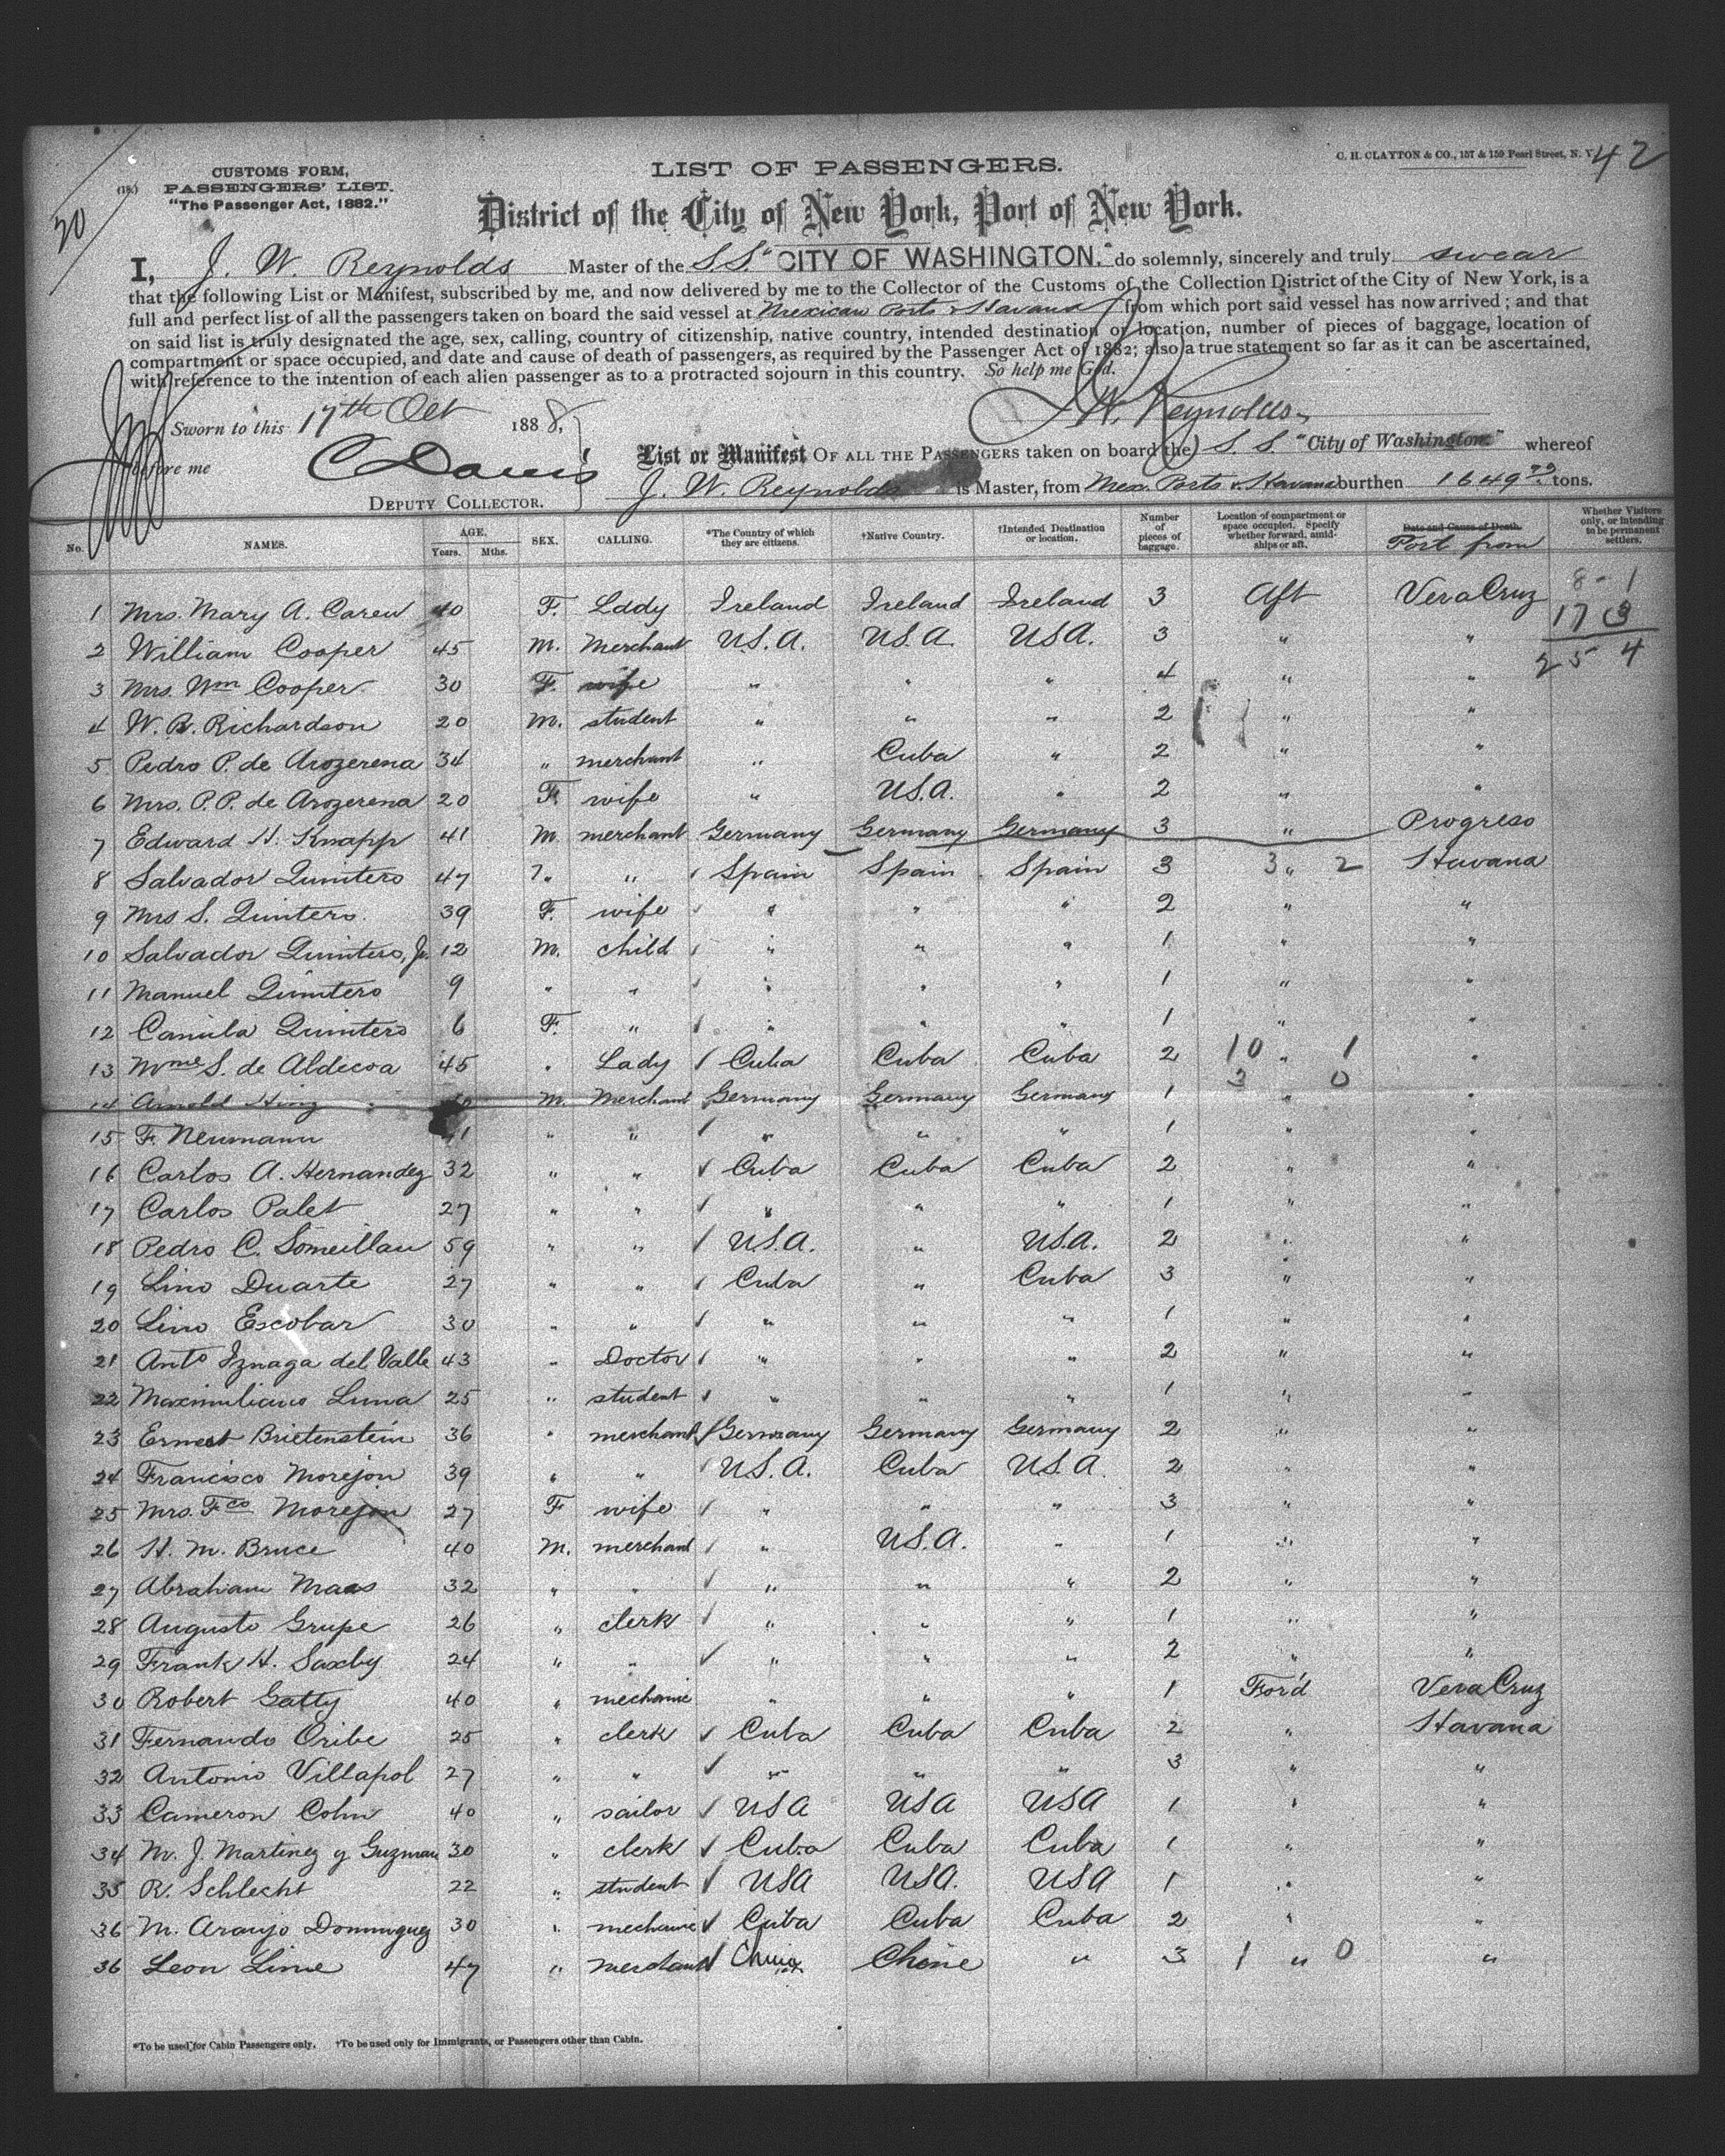 CUSTOMS FORM,
PASSENGERS' LIST.
"The Passenger Act, 1882."
LIST OF PASSENGERS.
C. H. CLAYTON & CO., 157 & 159 Pearl Street, N. Y.
42
20
District of the City of New York, Port of New York.
I, J. W. Reynolds Master of the S.S. "CITY OF WASHINGTON." do solemnly, sincerely and truly swear
that the following List or Manifest, subscribed by me, and now delivered by me to the Collector of the Customs of the Collection District of the City of New York, is a
full and perfect list of all the passengers taken on board the said vessel at Mexican Ports & Havana from which port said vessel has now arrived; and that
on said list is truly designated the age, sex, calling, country of citizenship, native country, intended destination or location, number of pieces of baggage, location of
compartment or space occupied, and date and cause of death of passengers, as required by the Passenger Act of 1882; also a true statement so far as it can be ascertained,
with reference to the intention of each alien passenger as to a protracted sojourn in this country. So help me God.
Sworn to this 17th Oct 1888, J. W. Reynolds
before me C Davis
DEPUTY COLLECTOR.
List or Manifest OF ALL THE PASSENGERS taken on board the S. S. "City of Washington" whereof
J. W. Reynolds is Master, from Mex. Ports & Havana burthen 1649 tons.
No. NAMES. AGE. Years. Mths. SEX. CALLING. *The Country of which they are citizens. †Native Country. †Intended Destination or location. Number of pieces of baggage. Location of compartment or space occupied. Specify whether forward, amidships or aft. Date and Cause of Death. Port from Whether Visitors only, or intending to be permanent settlers.
1 Mrs. Mary A. Carew 40 F. Lady Ireland Ireland Ireland 3 Aft Vera Cruz 8 - 1
2 William Cooper 45 M. Merchant U.S.A. U.S.A. USA. 3 " " 17 3
3 Mrs. Wm Cooper 30 F. wife " " " 4 " " 25 4
4 W. R. Richardson 20 M. student " " " 2 " "
5 Pedro P. de Arozerena 34 " merchant " Cuba " 2 " "
6 Mrs. P. P. de Arozerena 20 F. wife " U.S.A. " 2 " "
7 Edward H. Knapp 41 M. merchant Germany Germany Germany 3 " Progreso
8 Salvador Quintero 47 " " Spain Spain Spain 3 3 " 2 Havana
9 Mrs S. Quintero 39 F. wife " " " 2 " "
10 Salvador Quintero, Jr. 12 M. child " " " 1 " "
11 Manuel Quintero 9 " " " " " 1 " "
12 Camila Quintero 6 F. " " " " 1 " "
13 Mme S. de Aldecoa 45 " Lady Cuba Cuba Cuba 2 10 " 1 "
3 0
14 Arnold M. Merchant Germany Germany Germany 1 " "
15 F. Neumann " " " " " 1 " "
16 Carlos A. Hernandez 32 " " Cuba Cuba Cuba 2 " "
17 Carlos Palet 27 " " " " " 1 " "
18 Pedro C. Someillan 59 " " U.S.A. " U.S.A. 2 " "
19 Lino Duarte 27 " " Cuba " Cuba 3 " "
20 Lino Escobar 30 " " " " " 1 " "
21 Anto Iznaga del Valle 43 " Doctor " " " 2 " "
22 Maximiliano Luna 25 " student " " " 1 " "
23 Ernest Brietenstein 36 " merchant Germany Germany Germany 2 " "
24 Francisco Morejon 39 " " U.S.A. Cuba U.S.A. 2 " "
25 Mrs. Fco Morejon 27 F wife " " " 3 " "
26 H. M. Bruce 40 M. merchant " U.S.A. " 1 " "
27 Abraham Maas 32 " " " " " 2 " "
28 Augusto Grupe 26 " clerk " " " 1 " "
29 Frank H. Saxby 24 " " " " " 2 " "
30 Robert Gatty 40 " mechanic " " " 1 For'd Vera Cruz
31 Fernando Oribe 25 " clerk Cuba Cuba Cuba 2 " Havana
32 Antonio Villapol 27 " " " " " 3 " "
33 Cameron Cohn 40 " sailor USA USA USA 1 " "
34 M. J. Martinez y Guzman 30 " clerk Cuba Cuba Cuba 1 " "
35 R. Schlecht 22 " student USA USA. USA 1 " "
36 M. Araujo Dominguez 30 " mechanic Cuba Cuba Cuba 2 " "
36 Leon Lime 47 " merchant China Chine " 3 1 " 0 "
*To be used for Cabin Passengers only. †To be used only for Immigrants, or Passengers other than Cabin.